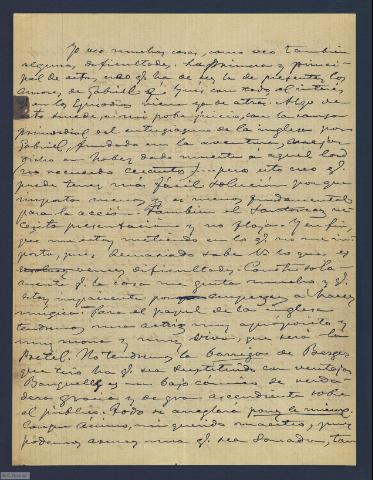 Yo veo muchas cosas, como veo tambien
algunas dificultades. La primera y princi-
pal de estas, creo qª ha de ser la de presentar los
amores de Gabriel é Inés con todo el interés
en los Episodios viene ya de atras. Algo de
esto sucede, á mi pobre juicio, con la causa
primordial del entusiasmo de la inglesa por
Gabriel, fundada en la aventura,
en haber dado muerte a aquel lord
(no recuerdo ) ... pero esto creo qª
puede tener mas fácil solucion porque
importa menos y es menos fundamental
para la accion. Tambien el Santorcaz ne-
cesita presentacion y no floja. Y en fin,
que me estoy metiendo en lo qª no me im-
porta, pues demasiado sabe V. lo que es
vencer dificultades. Conste sola-
mente qª la cosa me gusta mucho y qª
estoy impaciente por empezar a hacer
musica. Para el papel de la inglesa
tendremos una actriz muy apropósito y
muy mona y muy viva, que será la
Pretel. No tendremos la barriga de Berges,
que creo ha qª ser sustituido con ventaja.
Banquells es un bajo cómico de verda-
dera gracia y de gran ascendiente sobre
el público. Todo se arreglará pour le mieux.
Conque ánimo, mi querido maestro, y
podamos hacer una qª sea sonada, tan